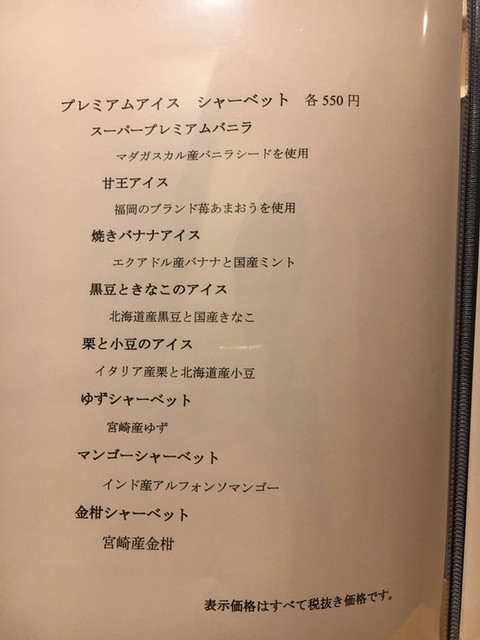 プレミアムアイス　シャーベット　各550円
スーパープレミアムバニラ
マダガスカル産バニラシードを使用
甘王アイス
福岡のブランド苺あまおうを使用
焼きバナナアイス
エクアドル産バナナと国産ミント
黒豆ときなこのアイス
北海道産黒豆と国産きなこ
栗と小豆のアイス
イタリア産栗と北海道産小豆
ゆずシャーベット
宮崎産ゆず
マンゴーシャーベット
インド産アルフォンソマンゴー
金柑シャーベット
宮崎産金柑
表示価格はすべて税抜き価格です。